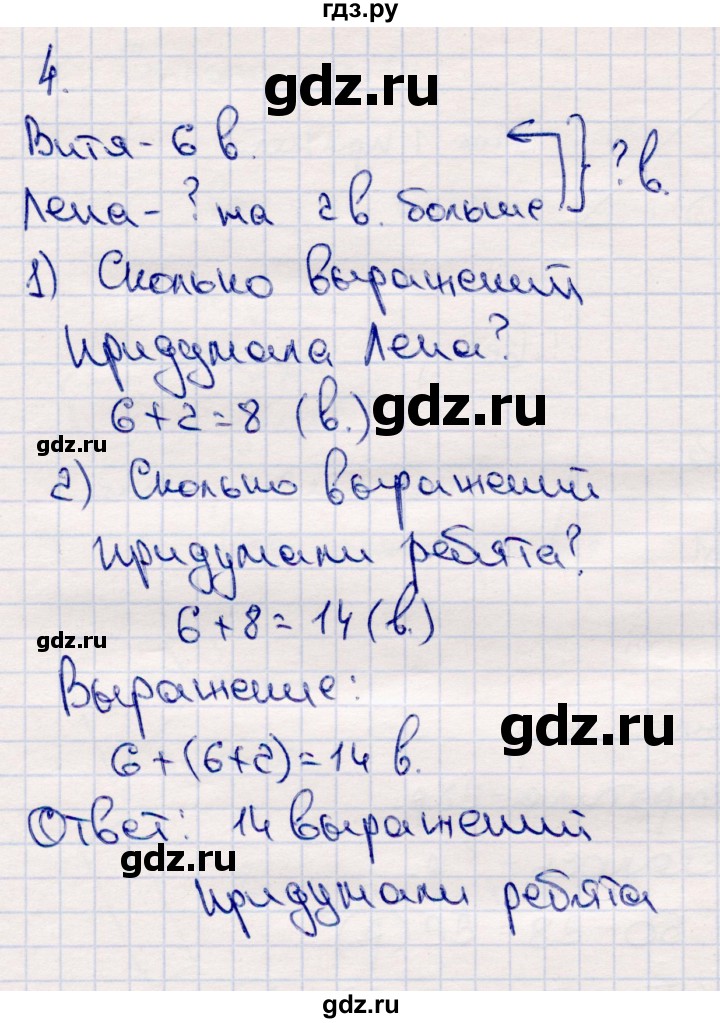 гдз.ру
4.
gdz.ru
Витя - 6 в.
Лена - ? на 2 в. больше
? в.
1) Сколько выражений
придумала Лена?
6+2=8 (в.)
gdz.ru
gdz.ru
2) Сколько выражений
придумали ребята?
6+8=14 (в.)
gdz.ru
Выражение:
gdz.ru
6+(6+2)=14 в.
Ответ: 14 выражений
gdz.ru
придумали ребята
gdz.ru